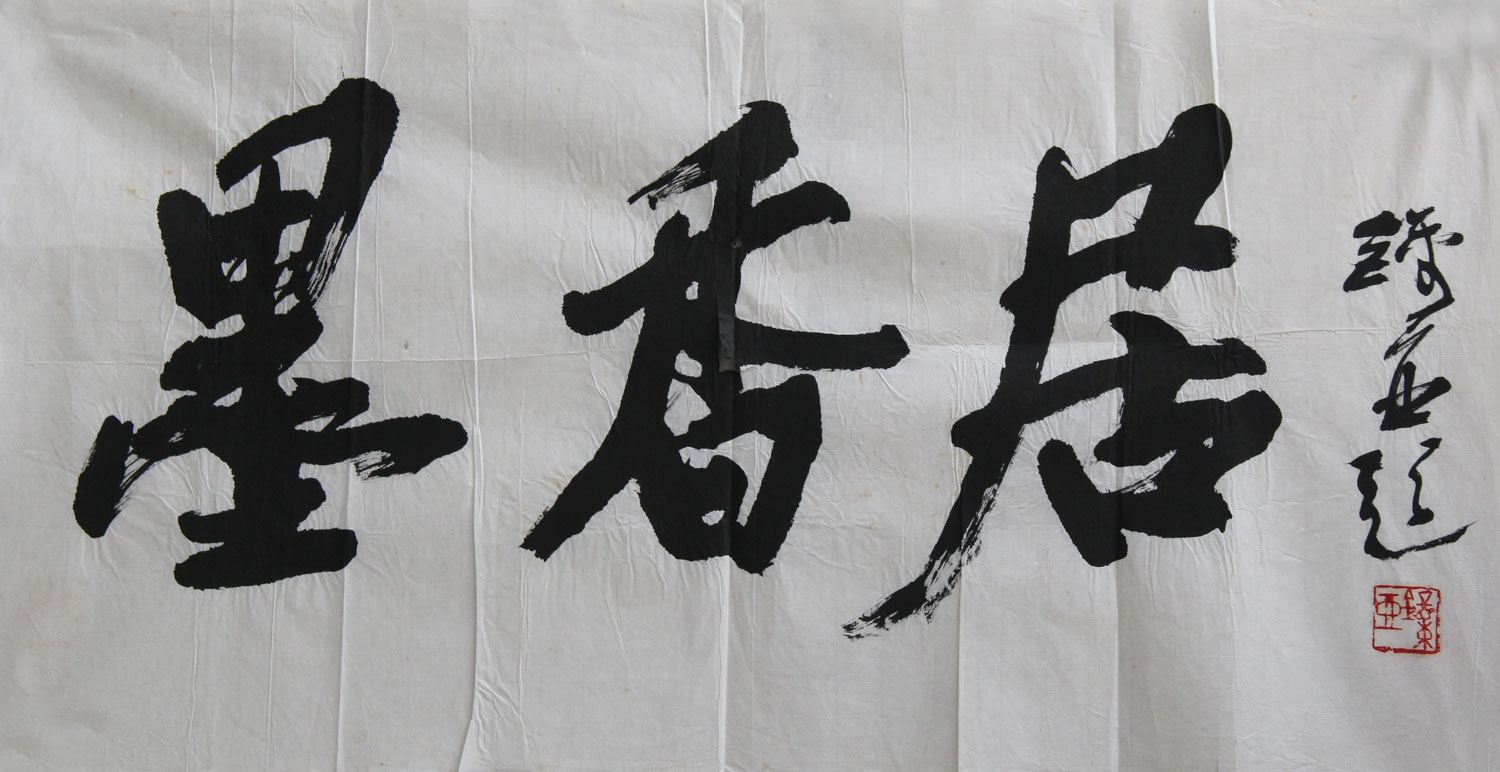 墨香居
亚题
亞